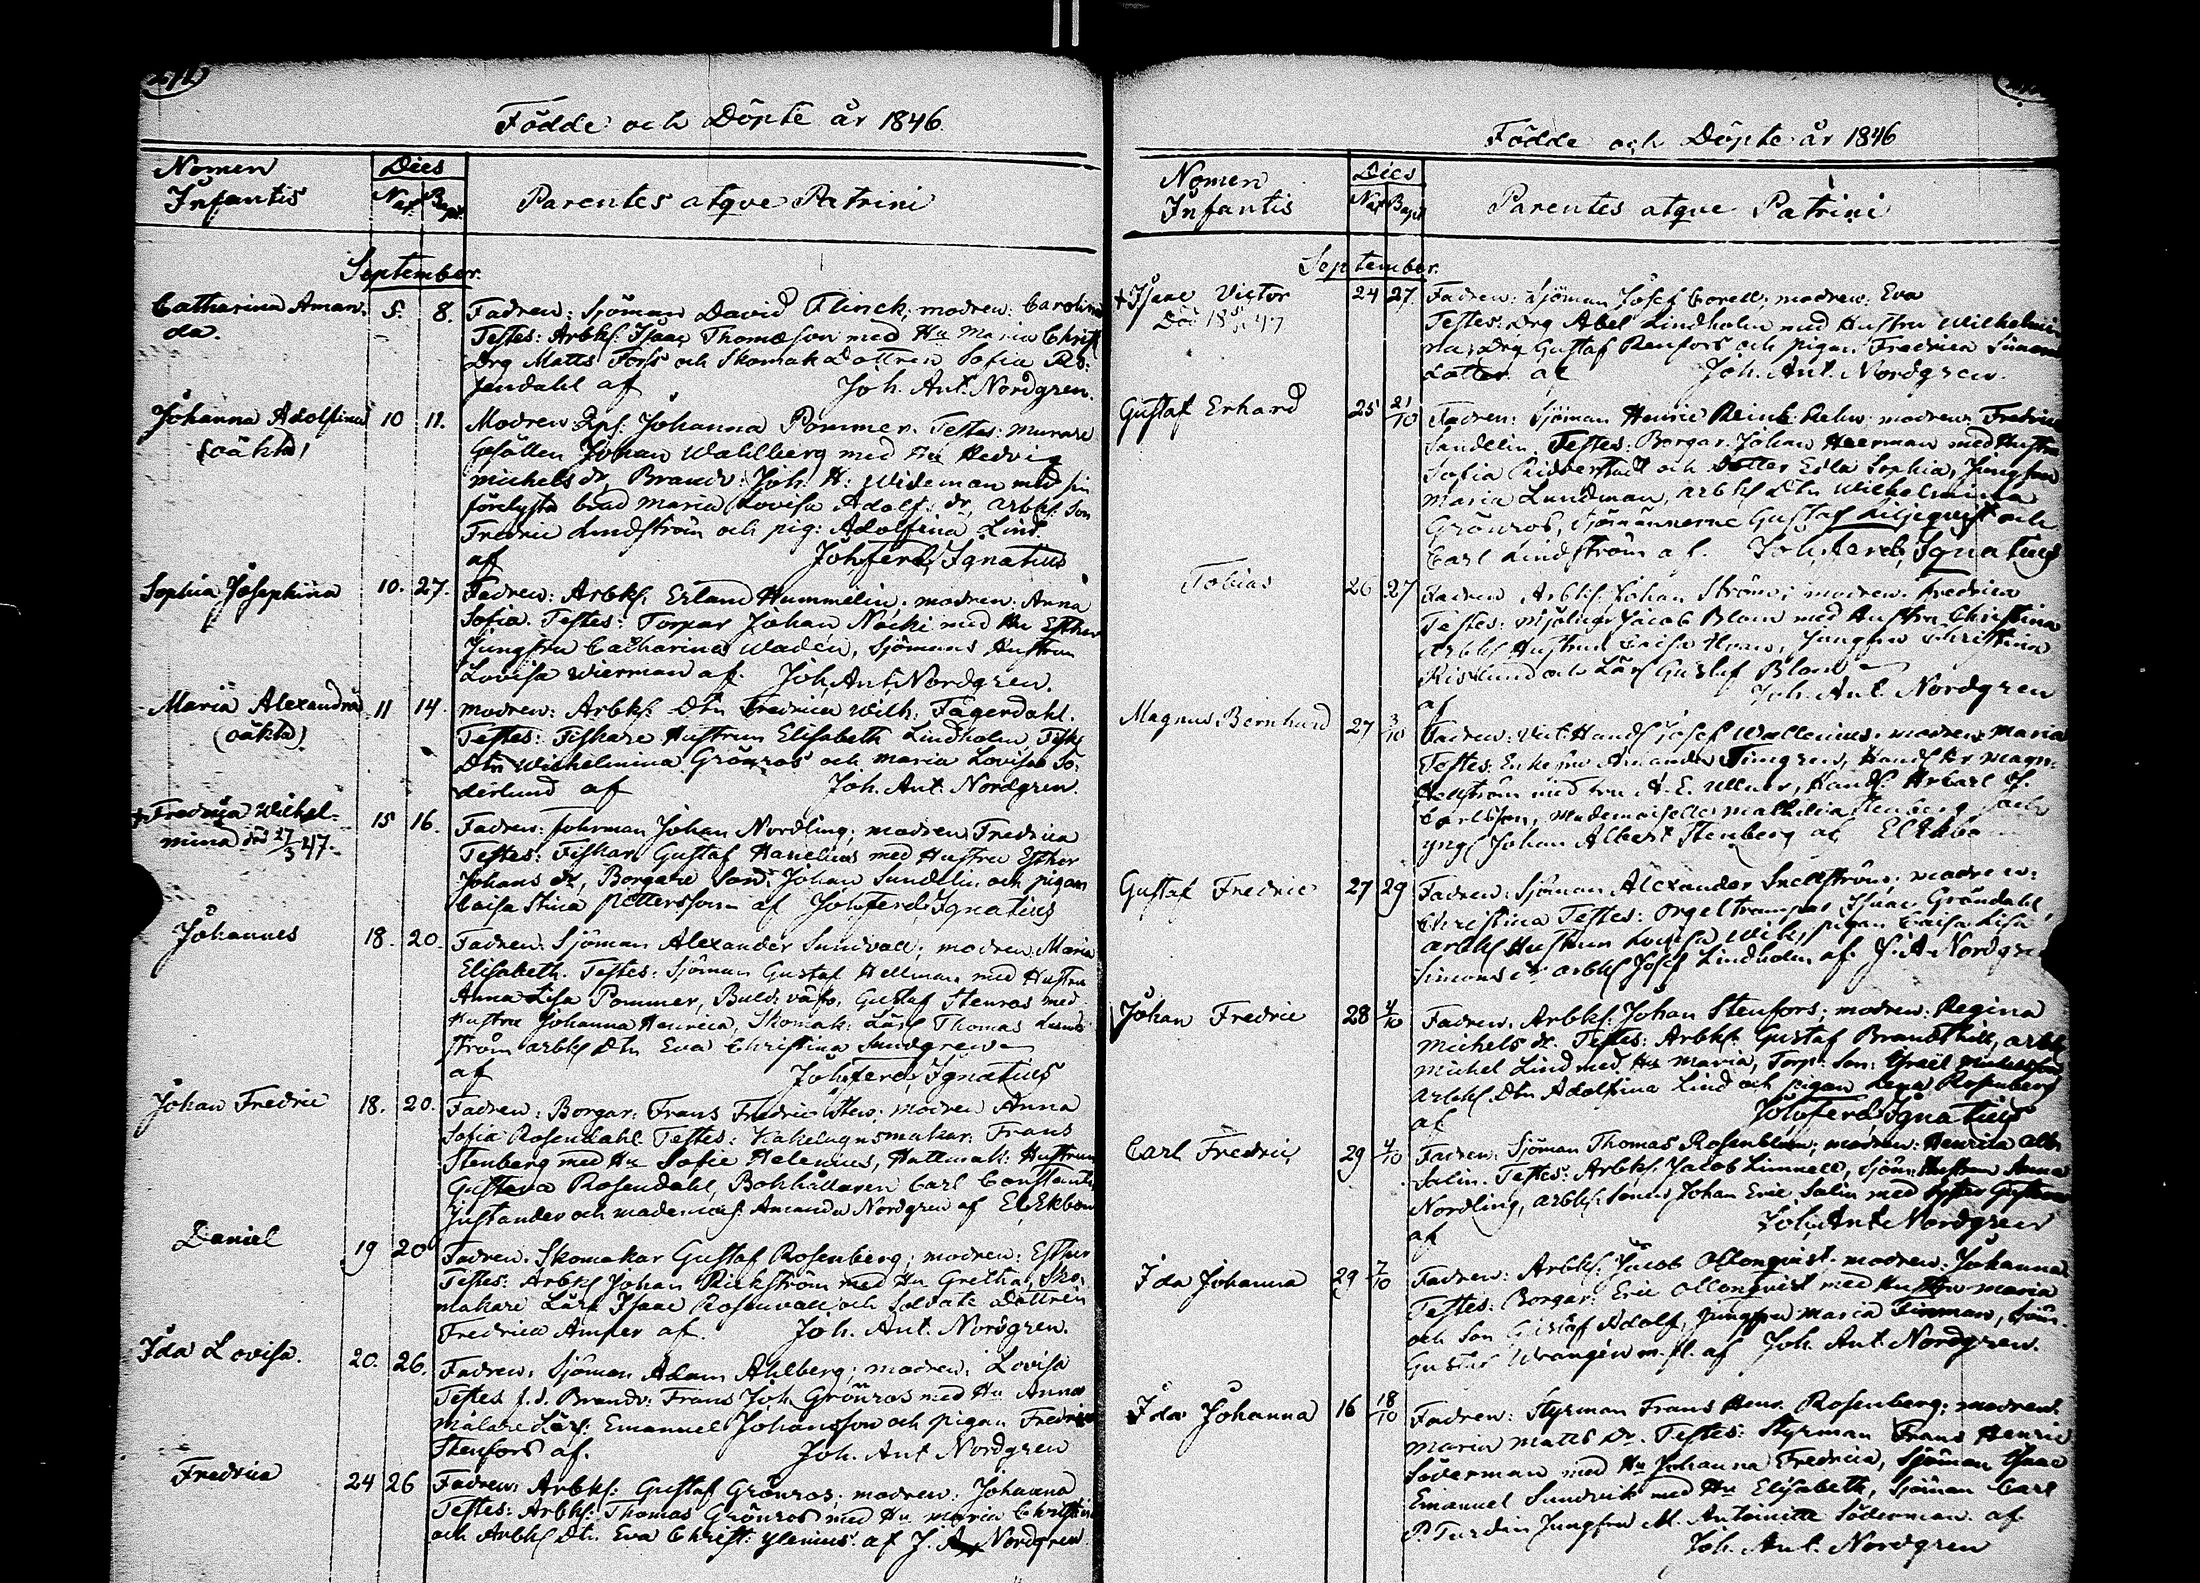 Födde och Döpte år 1846.
Nomen Infantis
Dies
Nat. Bapt.
Parentes atque Patrini
September.
Catharina Aman-
da.
5. 8. Fadren: Sjöman David Flinck; modren: Carolina
Testes: Arbks. Isaac Thomæson med Hu Maria Christ.
Drg Matts Forss och Skomak Dottren Sofia Ro-
sendahl af Joh. Ant. Nordgren.
Johanna Adolfina
(oäkta)
10 11. Modren Johanna Pommer. Testes: Murare
Gesällen Johan Wahlberg med Hu Hedvig
Michels dr, Brandv: Joh. H: Wideman med sin
förelysta brud Maria Lovisa Adolf: dr, Arbks. Son
Fredric Lindström och pig: Adolfina Lind.
af Joh. Ferd. Ignatius
Sophia Josephina
10. 27. Fadren: Arbks. Erland Hummelin. modren: Anna
Sofia. Testes: Torpar Johan Näcki med Hu Esther
Jungfru Catharina Wadén, Sjömans Hustrun
Lovisa Wierman af Joh. Ant. Nordgren.
Maria Alexandra
(oäkta)
11 14. modren: Arbks. Dtr Fredrica Wilh. Fagerdahl.
Testes: Fiskare Hustrun Elisabeth Lindholm, Fisk
Dtr Wilhelmina Grönros och Maria Lovisa Sö-
derlund af Joh. Ant. Nordgren.
+ Fredrica Wilhel-
mina död 27/3 47.
15 16. Fadren: forman Johan Nordling; modren Fredrica
Testes: Fiskar. Gustaf Hanelius med Hustru Esther
Johans dr, Borgare Son: Johan Sundelin och pigan
Caisa Stina Pettersson af Joh. Ferd. Ignatius
Johannes
18. 20. Fadren: Sjöman Alexander Sundvall; modren Maria
Elisabeth. Testes: Sjöman Gustaf Hellman med Hustru
Anna Lisa Pommer, Gustaf Stenros med
Hustru Johanna Henrica, Skomak: Lärl Thomas Lund-
ström arbks Dtr Eva Christina Sundgren
af Joh. Ferd. Ignatius
Johan Fredric
18. 20. Fadren: Borgar: Frans Fredric modren Anna
Sofia Rosendahl. Testes: Kakelugnsmakar. Frans
Stenberg med Hu Sofie Helenius, Hattmak: Hustrun
Gustava Rosendahl, Bokhållaren Carl Constantin
Justander och mademois. Amanda Nordgren af El. Ekbom
Daniel
19 20 Fadren: Skomakar Gustaf Rosenberg; modren: Esther
Testes: Arbks Johan Rickström med Hu Gretha, Sko-
makare Lärl Isaac Rosenvall och Soldats Dottren
Fredrica Amper af. Joh. Ant. Nordgren.
Ida Lovisa.
20. 26. Fadren: Sjöman Adam Ahlberg; modren: Lovisa
Testes f.d. Brandv: Frans Joh Grönros med Hu Anna
målare Lärl: Emanuel Johansson och pigan Fredrica
Stenfors af. Joh. Ant Nordgren
Fredrica
24 26 Fadren: Arbks: Gustaf Grönros; modren: Johanna
Testes: Arbks: Thomas Grönros med Hu Maria Christina
och Arbks Dtr. Eva Christ: Ylenius af J. A. Nordgren
Födde och Döpte år 1846
Nomen Infantis
Dies
Nat Bapt
Parentes atque Patrini
September.
+ Isaac Victor
Död 47
24 27. Fadren: Sjöman Josef Corell; modren: Eva
Testes: Drg Abel Lindholm med Hustru Wilhelmi-
na, Drg Gustaf Renfors och pigan Fredrica Simons
Dotter af Joh. Ant. Nordgren.
Gustaf Erhard
25 21/10 Fadren: Sjöman Henric modren: Fredrica
Sandelin Testes: Borgar. Johan Heerman med Hustru
Sofia Ridderstad och Dotter Edla Sophia, Jungfru
Maria Lundman, arbks Dtr Wilhelmina
Grönros, Sjömännerne Gustaf Liljeqvist och
Carl Lindström af. Joh. Ferd. Ignatius
Tobias
26 27 Fadren Arbks. Johan Ström; modren. Fredrica
Testes: Mjölnar Jacob Blom med Hustru Christina
Arbks Hustrun Caisa Jungfru Christina
och Lärl Gustaf Blom
af Joh. Ant. Nordgren
Magnus Bernhard
27 3/10 Fadren: Josef Wallenius. modren Maria
Testes: Enkefru Amanda Timgren, Handl. Hr Magn:
Hellström med fru A. E. Ullner, Handl: Hr Carl J.
Carlsson, Mademoiselle Mathilda Stenberg och
yngl Johan Albert Stenberg af El Ekbom
Gustaf Fredric
27 29 Fadren: Sjöman Alexander Snellström; modren:
Christina Testes: Orgeltrampar Isaac Gröndahl,
arbks Hustrun Lovisa Wik, pigan Caisa Lisa
Simons dr arbks Josef Lindholm af. J. A. Nordgren
Johan Fredric
28 4/10 Fadren: Arbks: Johan Stenfors; modren: Regina
Michels dr. Testes: Arbks. Gustaf Brandthill, arbks
Michel Lind med Hu Maria, Torp: Son: Israël
Arbks. Dtr Adolfina Lind och pigan Lena Rosenberg
af Joh. Ferd. Ignatius
Carl Fredric
29 4/10 Fadren: Sjöman Thomas Rosenblom; modren: Henrica Alb:
Salin. Testes: Arbks. Jacob Limnell, Sjöm: Hustrun Anna
Nordling, arbks: Sonen Johan Eric Salin med syster Gustava
af Joh. Ant Nordgren
Ida Johanna
29 7/10 Fadren: Arbks. Jacob Ollonqvist. modren: Johanna
Testes: Borgar: Eric Ollonqvist med Hustru Maria
och Son Gustaf Adolf, Jungfru Maria Finman, Sjöm.
Gustaf Wrangén m.fl. af Joh. Ant. Nordgren.
Ida Johanna
16 18/10 Fadren: Styrman Frans Henr. Rosenberg; modren:
Maria Matts Dr. Testes: Styrman Frans Henric
Söderman med Hu Johanna Fredrica, Sjöman Isaac
Emanuel Sundvik med Hu Elisabeth, Sjöman Carl
P. Jungfru M. Antoinette Söderman. af
Joh. Ant. Nordgren